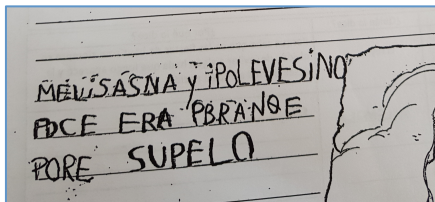 MEVISASNA y iPOLEVESINO
PDCE ERA PBRANQE
PORE SUPELO